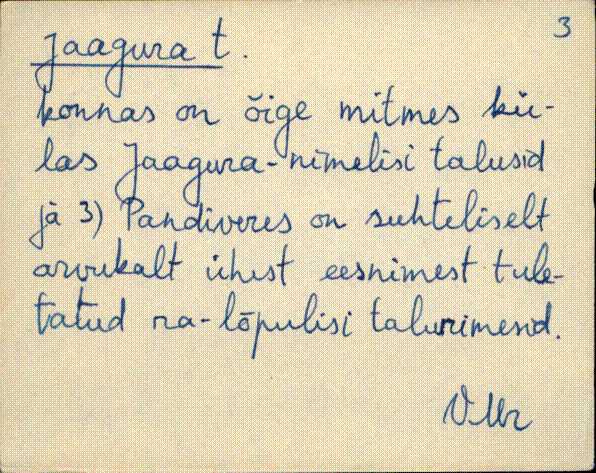 3
Jaagura t.
konnas on õige mitmes kü-
las Jaagura-nimelisi talusid
ja 3) Pandiveres on suhteliselt
arvukalt ühest eesnimest tule-
tatud ra-lõpulisi talunimesid.